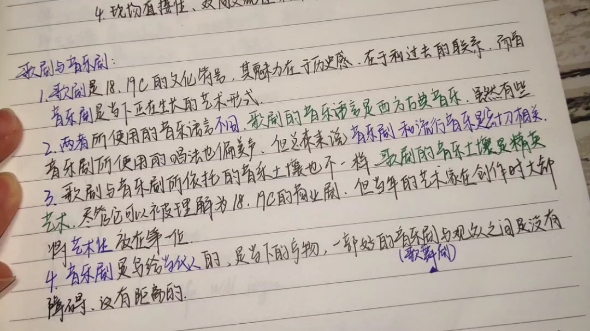 4. 现场直接性、双向交流性
歌剧与音乐剧:
1. 歌剧是18.19C的文化符号,其魅力在于历史感、在于和过去的联系,而音
音乐剧是当下正在生长的艺术形式.
2. 两者所使用的音乐语言不同,歌剧的音乐语言是西方古典音乐,虽然有些
音乐剧所使用的唱法也偏美声,但总体来说音乐剧和流行音乐息息相关.
3. 歌剧与音乐剧所依托的音乐土壤也不一样 歌剧的音乐土壤是精英
艺术,尽管它可以被理解为18.19C的商业剧,但当年的艺术家在创作时大都
将艺术性放在第一位
4. 音乐剧是写给当代人的,是当下的事物,一部好的音乐剧与观众之间是没有
(歌舞剧)
障碍、没有距离的.